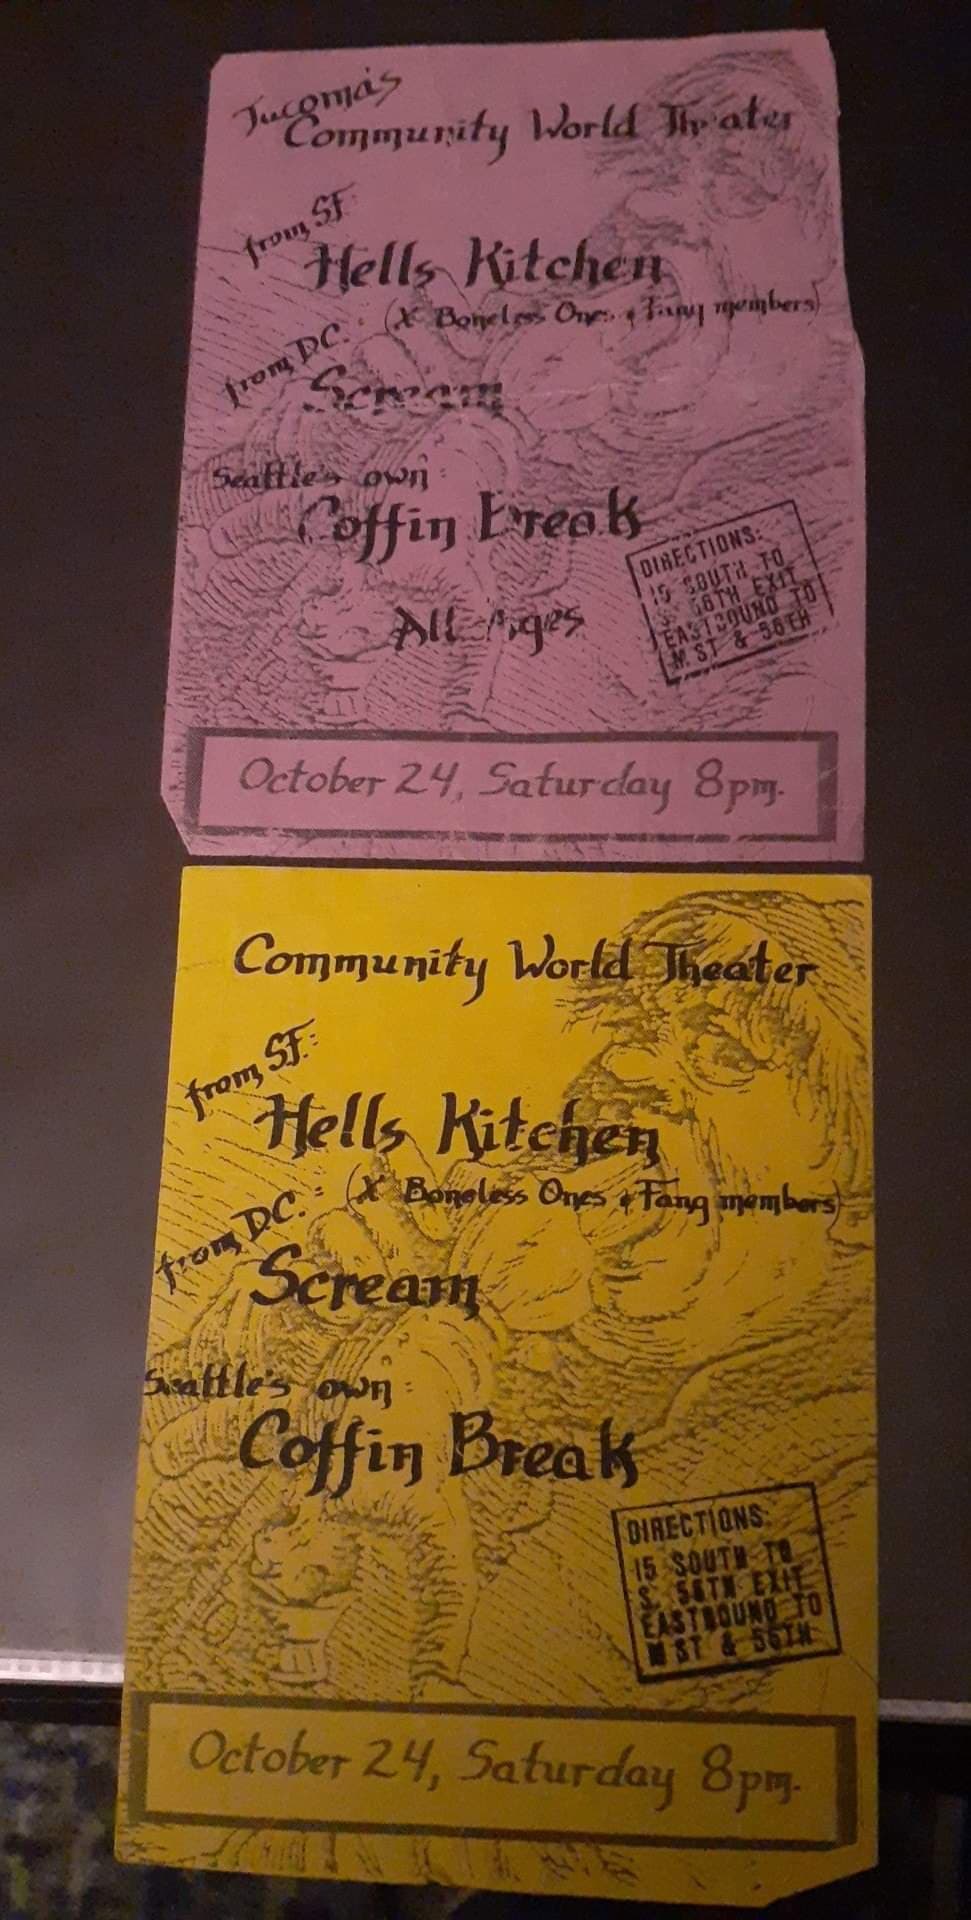 Tacoma's
Community World Theater
from SF:
Hells Kitchen
(X Boneless Ones & Fang members)
from D.C.:
Scream
Seattle's own:
Coffin Break
All Ages
DIRECTIONS:
I5 SOUTH TO
S. 56TH EXIT
EASTBOUND TO
M ST & 56TH
October 24, Saturday 8pm.
Community World Theater
from SF.:
Hells Kitchen
(X Boneless Ones & Fang members)
from D.C.:
Scream
Seattle's own:
Coffin Break
DIRECTIONS:
I5 SOUTH TO
S. 56TH EXIT
EASTBOUND TO
M ST & 56TH
October 24, Saturday 8pm.